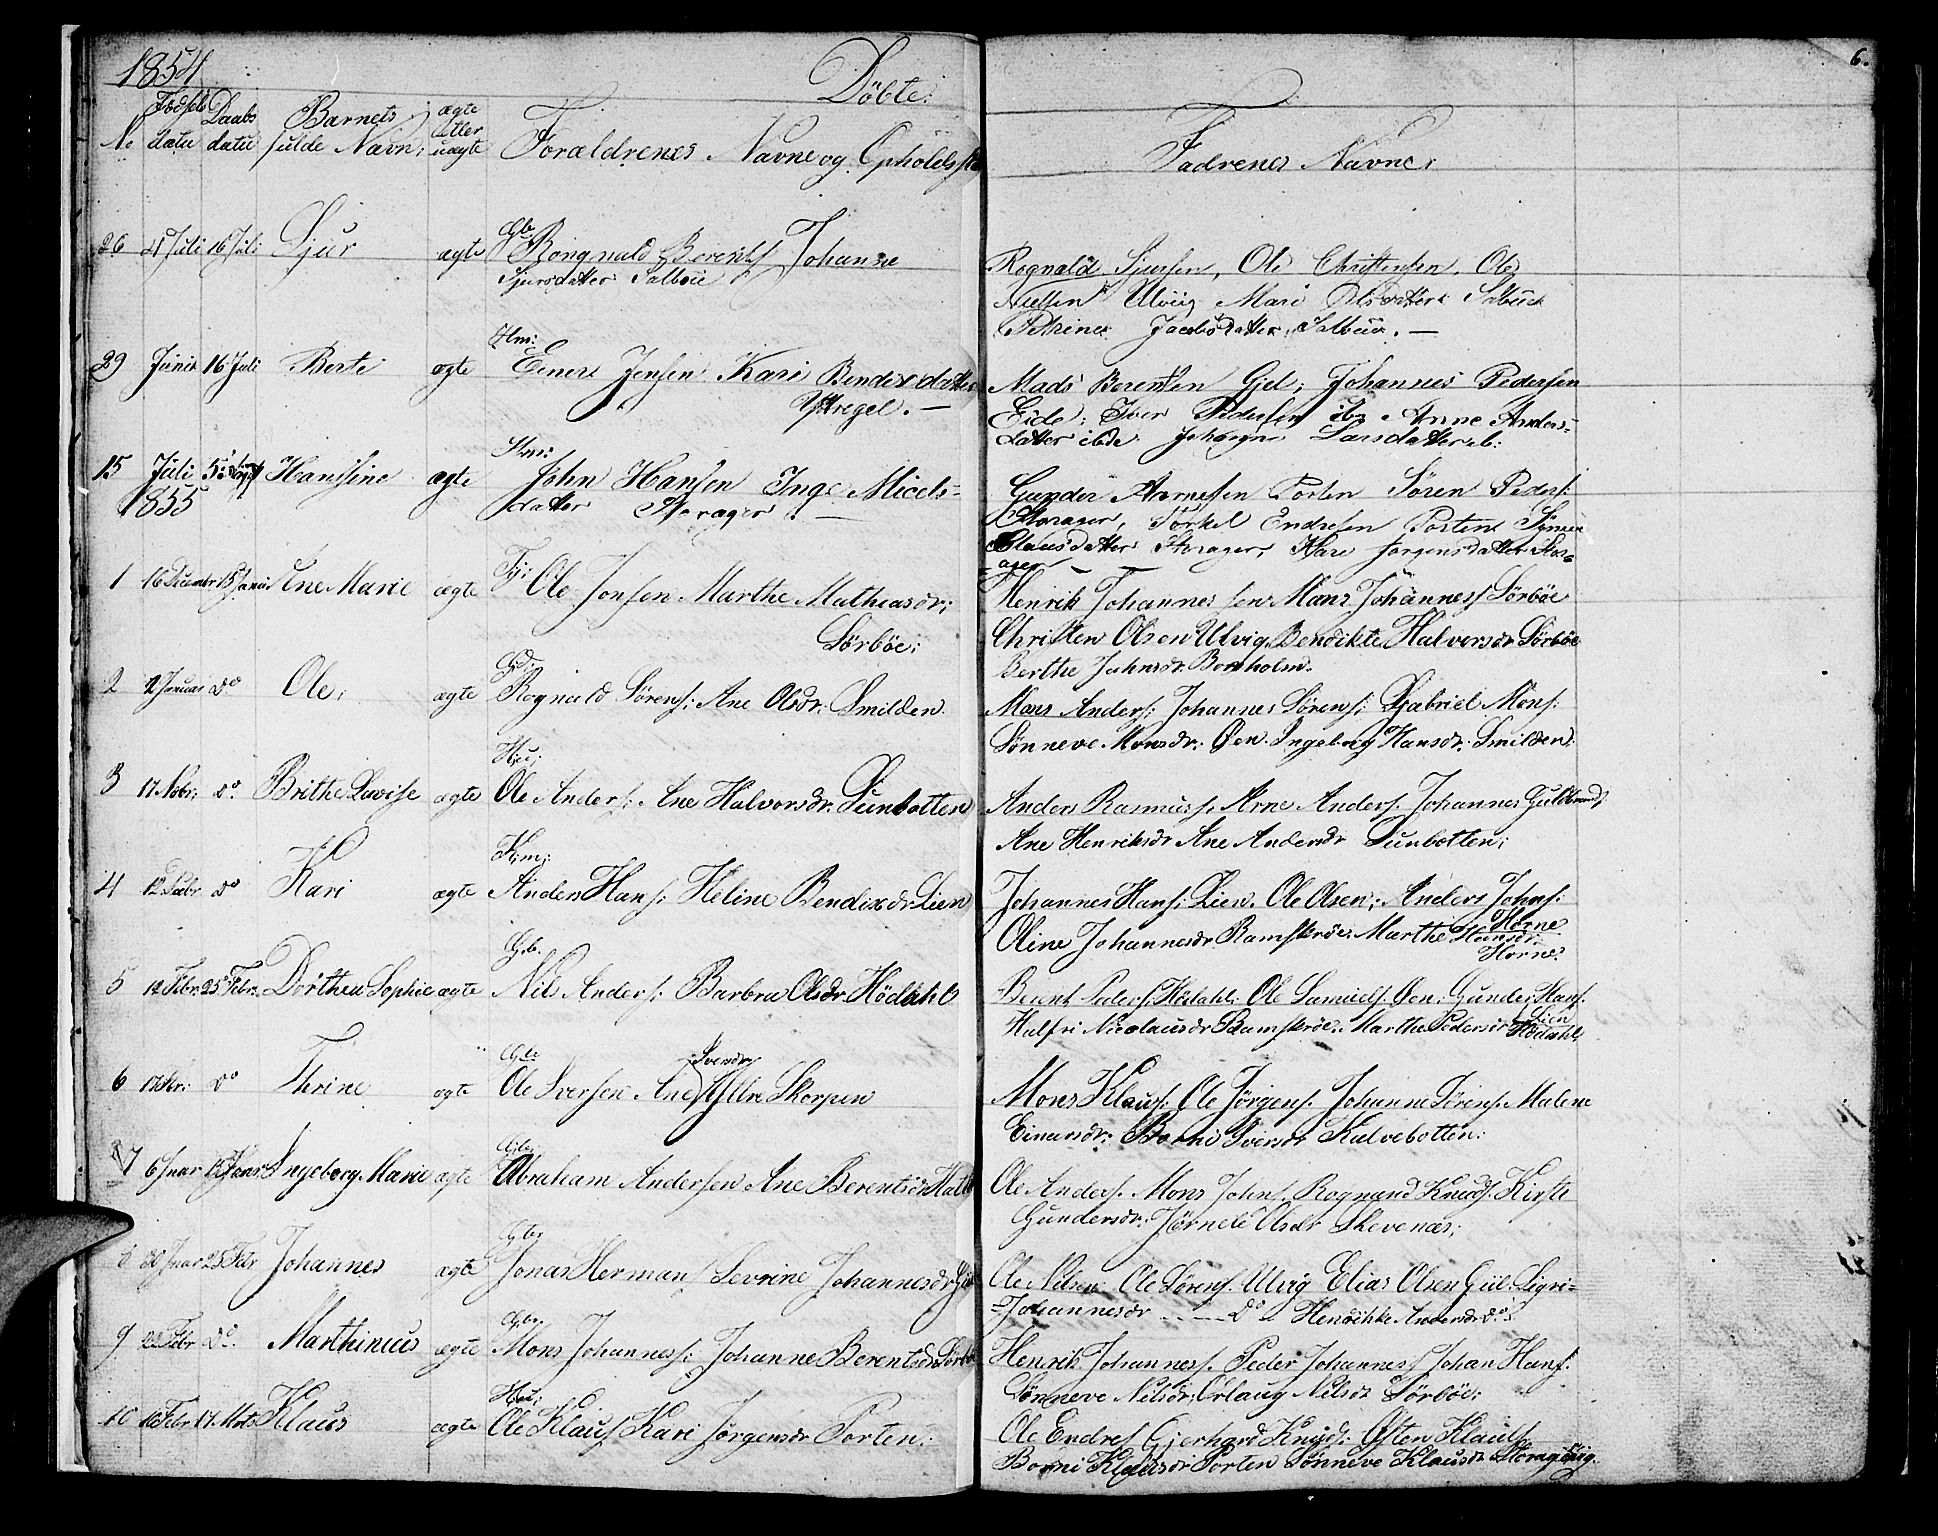 1854
Döbte:
6.
No
Fødsels
datu
Daabs
datu
Barnets
fulde Navn;
ægte
eller
uægte
Forældrenes Navne og Opholdsst
Fadrenes Navne;
26 21 Juli 16 Juli Sjur ægte Gb. Rongnald Berents Johanne
Sjursdatter Salbøe
Rognald Sjursen, Ole Christensen, Ole
Nielsen Ulvig Mari Olsdatter
Petrine Jacobsdatter Salbøe. —
29 Juni 16 Juli Berte ægte Hm: Einers Jensen Kari Bendixdatter
Ystregel. —
Mads Berentsen Gjel; Johannes Pedersen
Eide; Iver Pedersen ib. Anne Anders=
datter ibde Larsdatter ib.
15 Juli Hanssine ægte Hm: John Hansen Inge Micels=
datter Storager. —
Gunder Arnesen Porten Sören Peders:
Storager, Torkel Endresen Porten
Clausdatter Storager Kari Jørgensdatter Stor=
=ager — —
1855
1 16 Decembr 15 Januar Ane Marie ægte Ole Jonsen Marthe Mathiasdr;
Sörböe;
Henrik Johannessen Mons Johannes Sörböe
Christen Olsen Ulvig Bendikte Halvorsdr Sörböe
Berthe Johnsdr. Bornholm.
2 2 Januar do Ole; ægte Rognald Sörens; Ane Olsdr. Smilden.
Mons Anders; Johannes Sörens; Gabriel Mons;
Sönneve Monsdr; Øen Ingeborg Hansdr: Smilden:
3 17 Nobr; do. Brithe Lovise ægte Ole Anders; Ane Halvorsdr. Sunbotten
Anders Rasmuss. Arne Anders. Johannes Guldbrands
Ane Henriksdr Ane Andersdr Sunbotten;
4 12 do Kari ægte Hm: Anders Hans; Heline Bendixdr. Lien
Johannes Hans; Lien. Ole Olsen; Anders Johns;
Horne
Oline Johannesdr Ramskröe: Marthe Hansdr:
Horne.
5 12 Febr. 25 Febr. Dörthea Sophie ægte Gb. Nils Anders; Barbra Olsdr Hödahl
Bernt Peders. Hödahl; Ole Samuels. Øen; Gunder Hans.
Lien
Nicolausdr Ramskröe. Marthe Pedersdr Hödahl,
6 do Thrine ægte Gb. Svendsr
Ole Iversen Ane Skorpen
Mons Klaus. Ole Jörgens. Johanne Sörens. Malene
Einarsdr: Iversdr Kalvebotten;
7 6 Jnar 15 Jnar Ingeborg Marie ægte Gb. Abraham Andersen Ane Berentsdr
Ole Anders. Mons Johns. Rognand Knuds. Kirste
Gundersdr; Olsdr Skevenæs;
8 30 Jnar 25 Febr Johannes ægte Gb. Jonas Hermans Sevrine Johannesdr
Ole Nilsen Ole Sörens. Ulvig Elias Olsen Giel. Sigri=
=Johannesdr — do Andersdr do.
9 Febr do. Marthinius ægte Gb. Mons Johanness; Johanne Berentsdr Sörbö
Henrik Johanness. Peder Johanness Johan Hans.
Sönneve Nilsdr. Orlaug Nilsdr Sörböe;
10 16 Febr 17. Mrts Klaus ægte Ole Klaus; Kari Jørgensdr Porten;
Ole Endres Gjerhard Knuds; Østen Klaus
Klausdr Porten Sönneve Klausdr